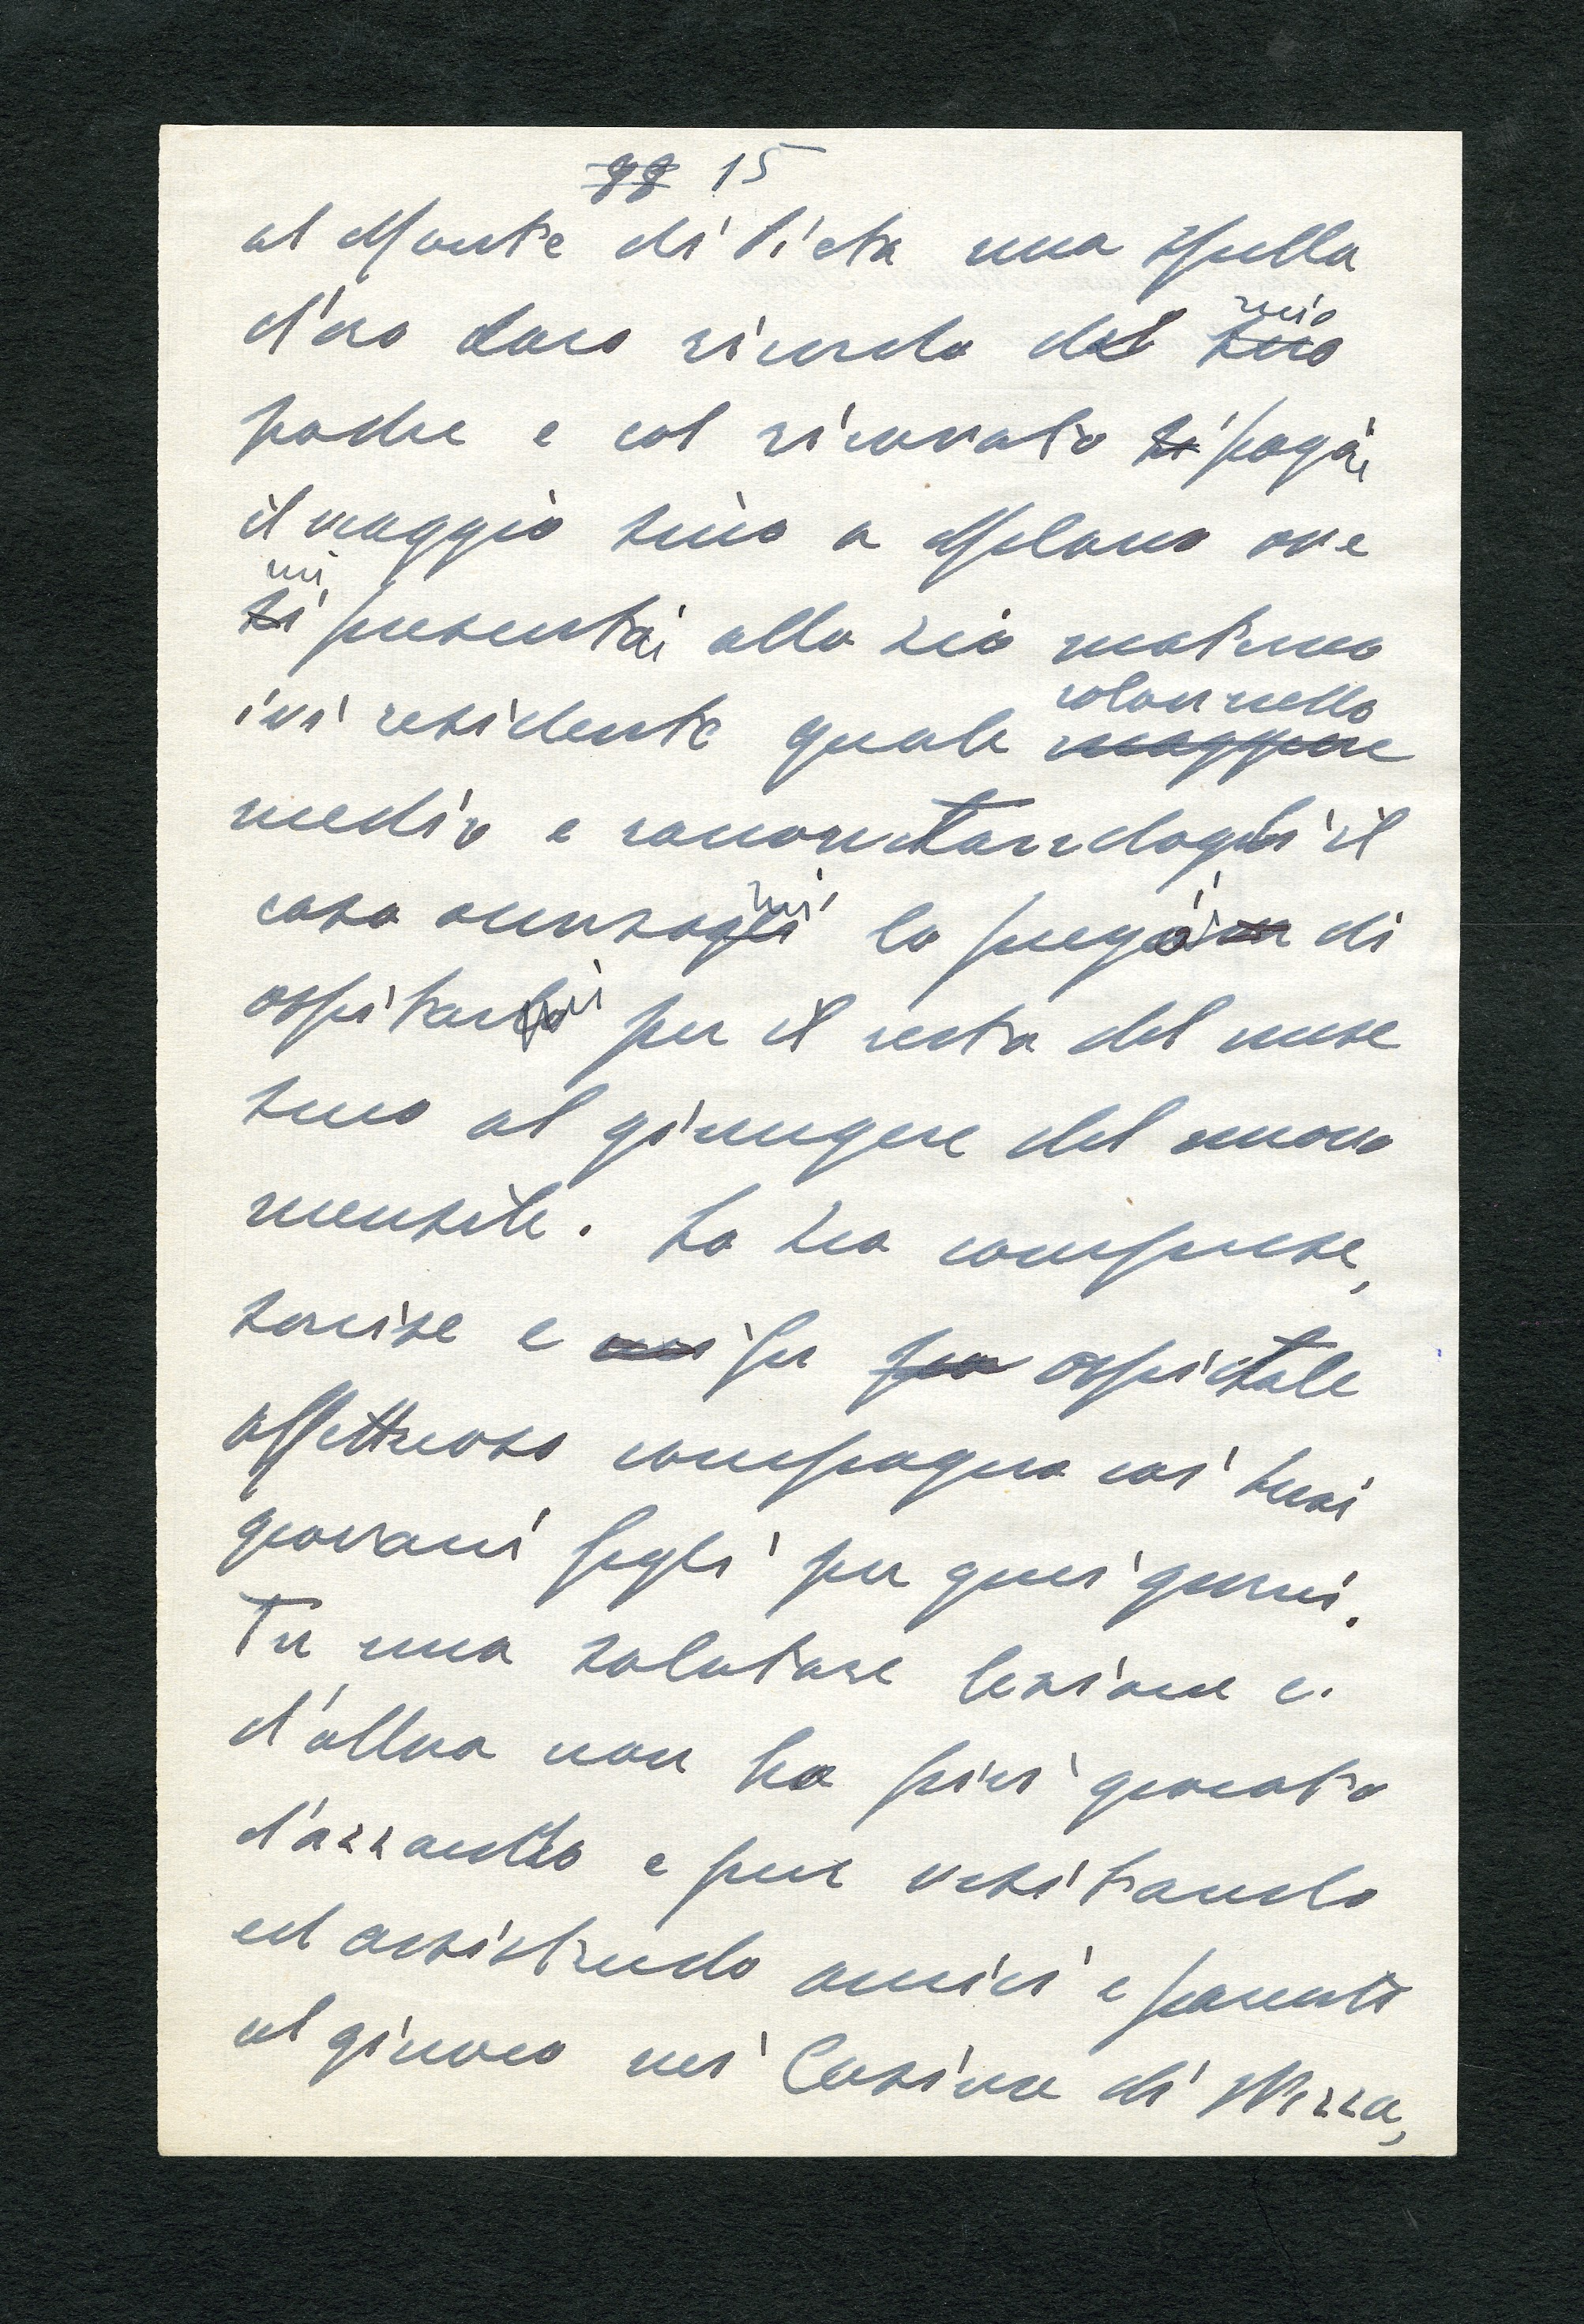 15
al Monte di Pietà una spilla
d'oro caro ricordo del mio
padre e col ricavato pagai
il viaggio sino a Milano ove
mi presentai allo zio materno
ivi residente quale colonnello
medico e raccontandogli il
caso mi lo pregai di
ospitarmi per il resto del mese
sino al giungere del nuovo
mensile. Lo zio comprese,
sorrise e fu ospitale
affettuoso compagno coi suoi
giovani figli per quei giorni.
Fu una salutare lezione e
d'allora non ho più giocato
d'azzardo e pur visitando
ed assistendo amici e parenti
al giuoco nei Casino di Nizza,